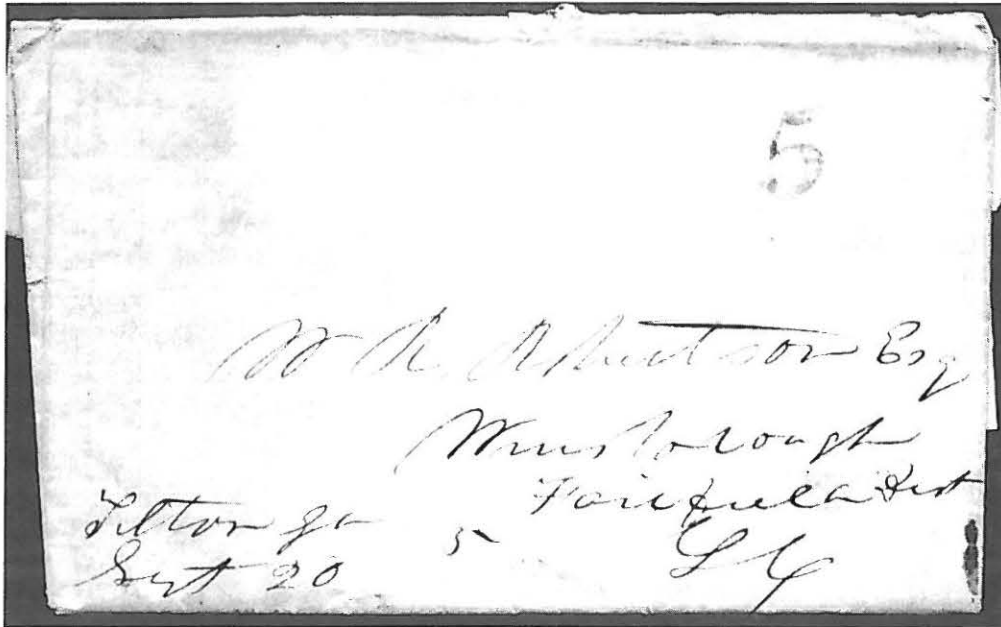 5
W R Robertson Esq
Winnsborough
Fairfield Dist
S C
Tilton Ga
5
Sept 20